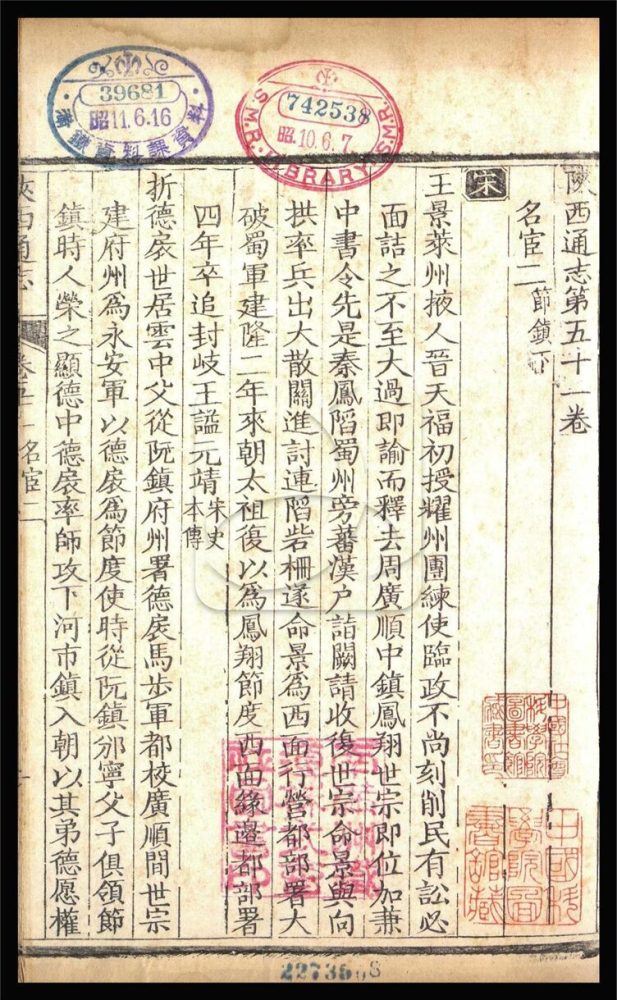 39681
昭11.6.16
742538
S.M.R. LIBRARY S.M.R.
昭10.6.7
陝西通志第五十一卷
名宦二 節鎮下
宋
王景萊州掖人晉天福初授耀州團練使臨政不尚刻削民有訟必
面詰之不至大過即諭而釋去周廣順中鎮鳳翔世宗即位加兼
中書令先是秦鳳陷蜀州旁蕃漢户詣闕請收復世宗命景與向
拱率兵出大散關進討連陷砦柵遂命景爲西面行營都部署大
破蜀軍建隆二年來朝太祖復以爲鳳翔節度西面緣邊都部署
四年卒追封岐王諡元靖 宋史本傳
折德扆世居雲中父從阮鎮府州署德扆馬步軍都校廣順間世宗
建府州爲永安軍以德扆爲節度使時從阮鎮邠寧父子俱領節
鎮時人榮之顯德中德扆率師攻下河市鎮入朝以其弟德愿權
陝西通志
卷五十一 名宦二
中國科學院圖書館藏
227358